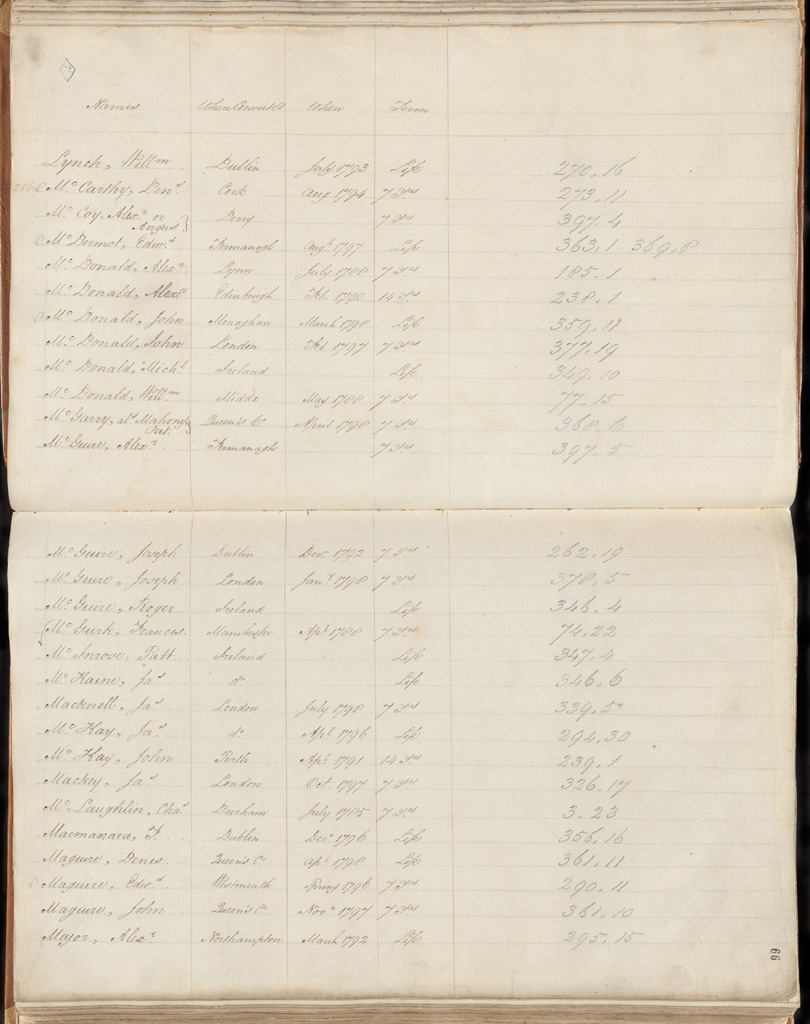 Names When Convicted When Term
Lynch, Willm Dublin July 1793 Life 270.16
McCarthy, Den Cork Aug 1794 7 Yrs 273.11
McCoy, Alexr or Angus Derry 7 Yrs 397.4
McDermot, Edwd Fermanagh Augt 1797 Life 363.1 369.8
McDonald, Alexr Lynn July 1788 7 Yrs 185.1
McDonald, Alexr Edinburgh Feb. 1790 14 Yrs 238.1
McDonald, John Monaghan March 1798 Life 359.11
McDonald, John London Feb. 1797 7 Yrs 377.19
McDonald, Michl Ireland Life 349.10
McDonald, Willm Middx May 1788 7 Yrs 77.15
McGarry, als Mahony, Pat. Queen's Co. April 1798 7 Yrs 368.6
McGuire, Alexr Fermanagh 7 Yrs 397.5
McGuire, Joseph Dublin Dec 1792 7 Yrs 262.19
McGuire, Joseph London Jany 1798 7 Yrs 378.5
McGuire, Roger Ireland Life 346.4
McGurk, Frances Manchester Apl 1788 7 Yrs 74.22
McInrose, Patt Ireland Life 347.4
McKaine, Jas do Life 346.6
Macknell, Jas London July 1798 7 Yrs 339.5
McKay, Jas do Apl 1796 Life 294.30
McKay, John Perth Apl 1791 14 Yrs 239.1
Mackey, Jas London Oct. 1797 7 Yrs 326.17
McLaughlin, Chas Durham July 1785 7 Yrs 3.23
Macmanara, T. Dublin Decr 1796 Life 356.16
Maguire, Denis Queen's Co Apl 1798 Life 361.11
Maguire, Edwd Westmeath Spring 1796 7 Yrs 290.11
Maguire, John Queen's Co. Novr 1797 7 Yrs 361.10
Major, Alexr Northampton March 1792 Life 295.15
99